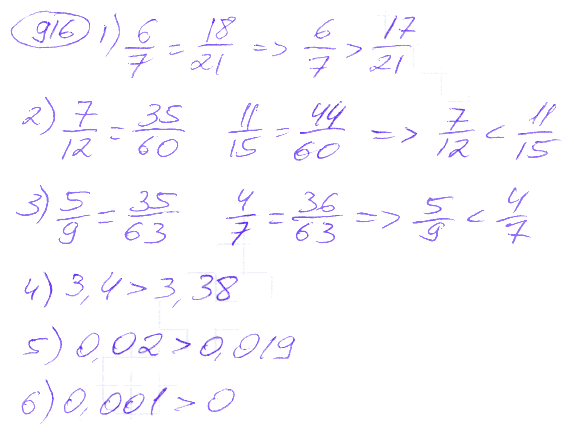 916 1) 6/7 = 18/21 => 6/7 > 17/21
2) 7/12 = 35/60 11/15 = 44/60 => 7/12 < 11/15
3) 5/9 = 35/63 4/7 = 36/63 => 5/9 < 4/7
4) 3,4 > 3,38
5) 0,02 > 0,019
6) 0,001 > 0